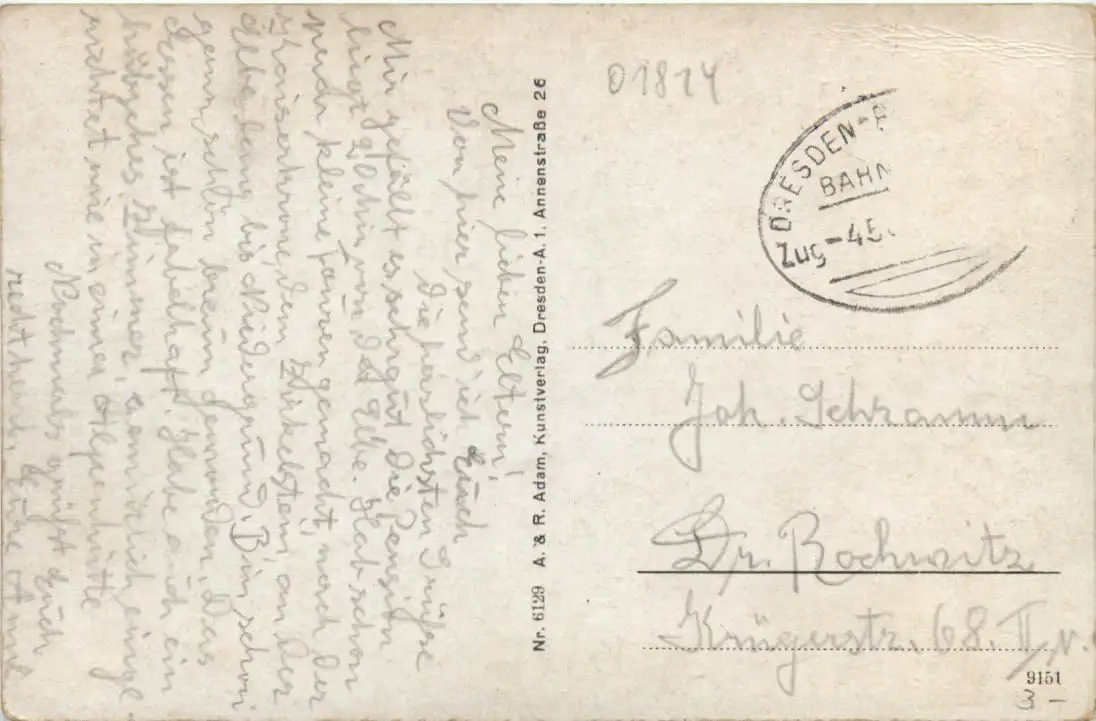 Meine lieben Eltern!
Von hier send ich Euch
die herzlichsten Grüße
Mir gefällt es sehr gut die Pension
liegt 20 Min von der Elbe. Hab schon
kleine Touren gemacht, nach der
Kaiserkrone, dem Zirkelstein, an der
Elbe lang bis Niedergrund. Bin schon
ganz schön braun geworden. Das
Essen ist fabelhaft. Habe auch ein
hübsches Zimmer, ziemlich einge
richtet wie in einer Alpenhütte
Nochmals grüßt Euch
recht herzl. Eure
Nr. 6129 A. & R. Adam, Kunstverlag, Dresden-A. 1, Annenstraße 26
01814
DRESDEN-
BAHN
Zug-45
Familie
Joh. Schramm
Dr. Rochwitz
Krügerstr. 68. II
9151
3 -